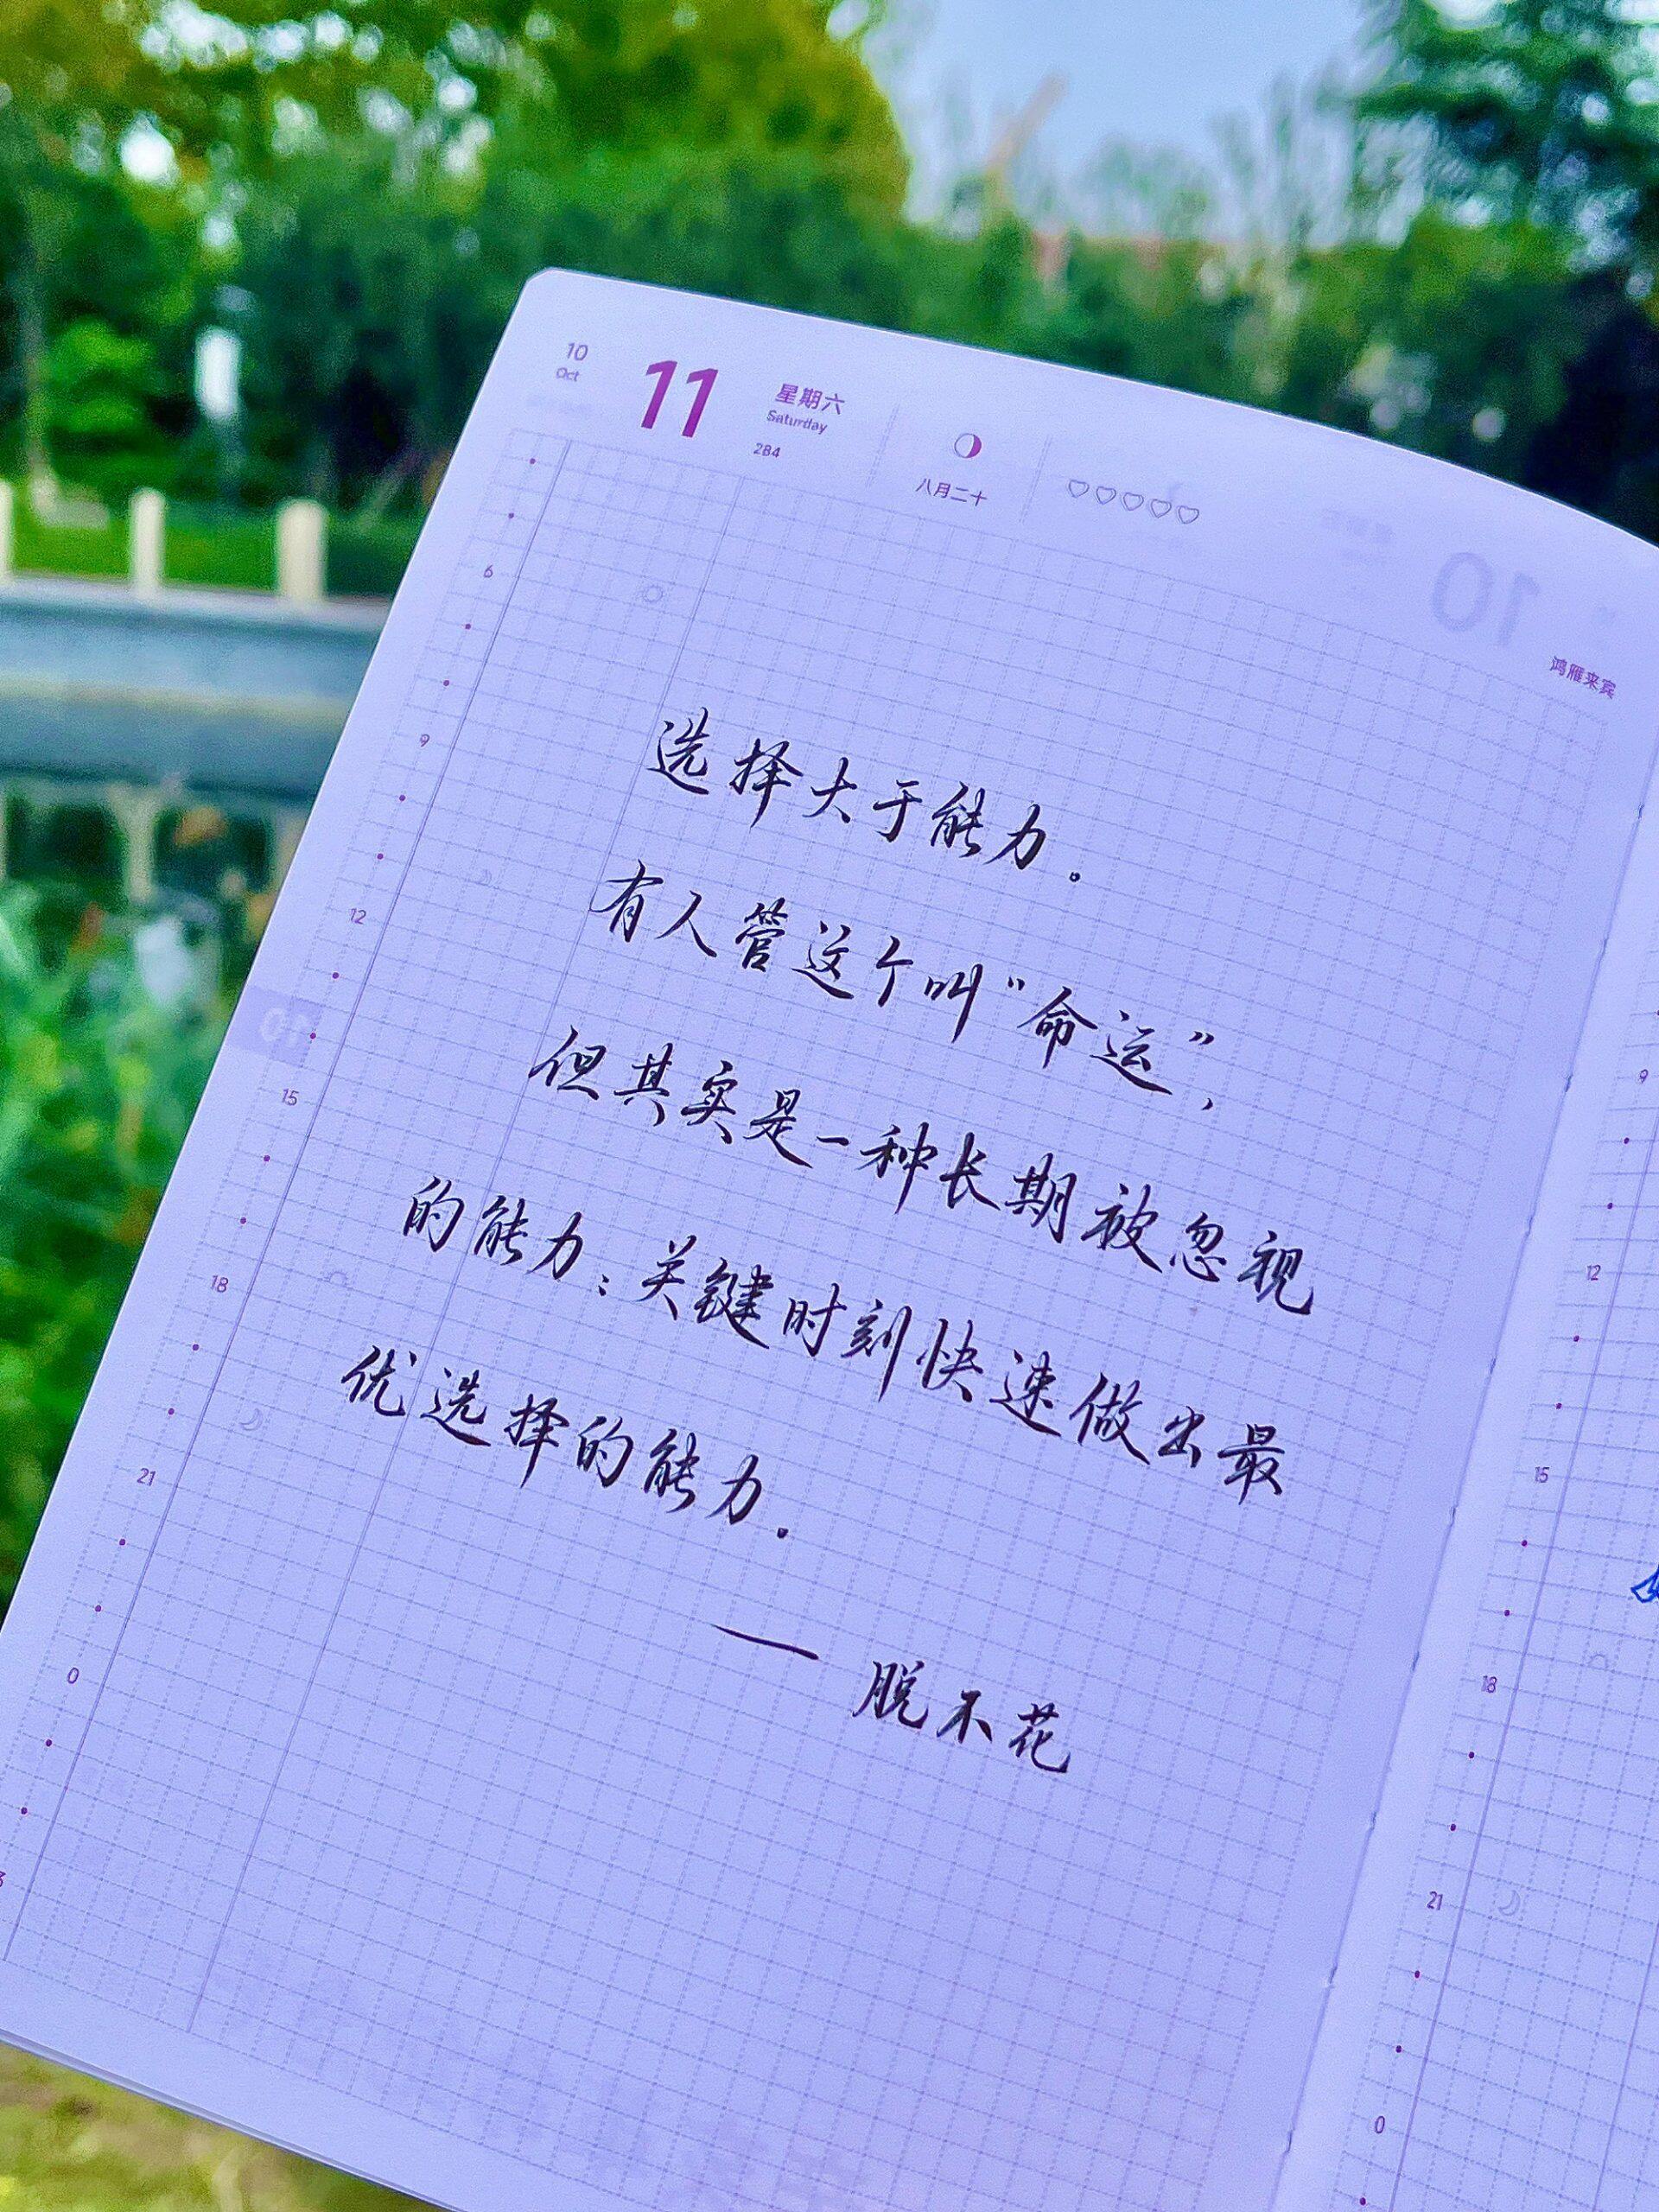 10
Oct
11
星期六
Saturday
284
八月二十
鸿雁来宾
选择大于能力。
有人管这个叫“命运”，
但其实是一种长期被忽视
的能力：关键时刻快速做出最
优选择的能力.
— 脱不花
6
9
12
15
18
21
0
9
12
15
18
21
0